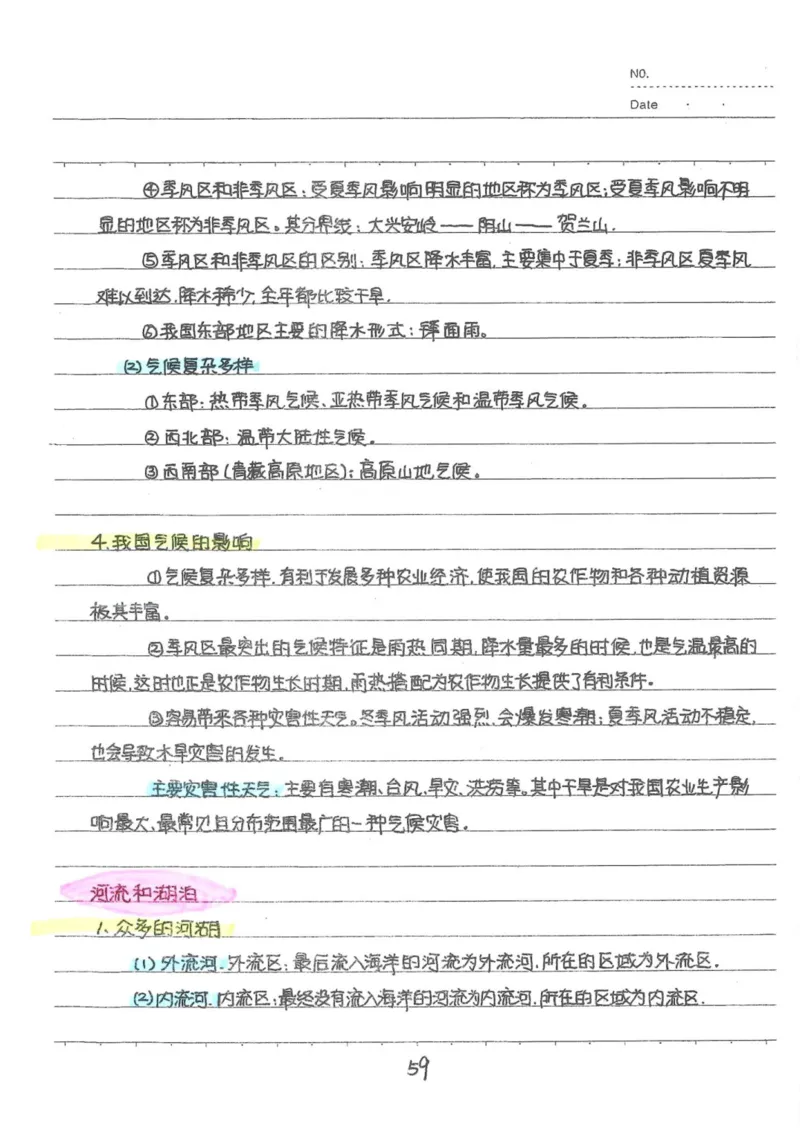 NO.
Date · ·
④季风区和非季风区：受夏季风影响明显的地区称为季风区；受夏季风影响不明
显的地区称为非季风区。其分界线：大兴安岭——阴山——贺兰山.
⑤季风区和非季风区的区别：季风区降水丰富，主要集中于夏季；非季风区夏季风
难以到达，降水稀少，全年都比较干旱.
⑥我国东部地区主要的降水形式：锋面雨。
(2)气候复杂多样
①东部：热带季风气候、亚热带季风气候和温带季风气候。
②西北部：温带大陆性气候。
③西南部(青藏高原地区)：高原山地气候。
4.我国气候的影响
①气候复杂多样，有利于发展多种农业经济，使我国的农作物和各种动植资源
极其丰富。
②季风区最突出的气候特征是雨热同期，降水量最多的时候，也是气温最高的
时候，这时也正是农作物生长时期，雨热搭配为农作物生长提供了有利条件。
③容易带来各种灾害性天气。冬季风活动强烈，会爆发寒潮；夏季风活动不稳定，
也会导致水旱灾害的发生。
主要灾害性天气：主要有寒潮、台风、旱灾、洪涝等。其中干旱是对我国农业生产影
响最大、最常见且分布范围最广的一种气候灾害。
河流和湖泊
1.众多的河湖
(1)外流河.外流区：最后流入海洋的河流为外流河，所在的区域为外流区.
(2)内流河.内流区：最终没有流入海洋的河流为内流河，所在的区域为内流区.
59